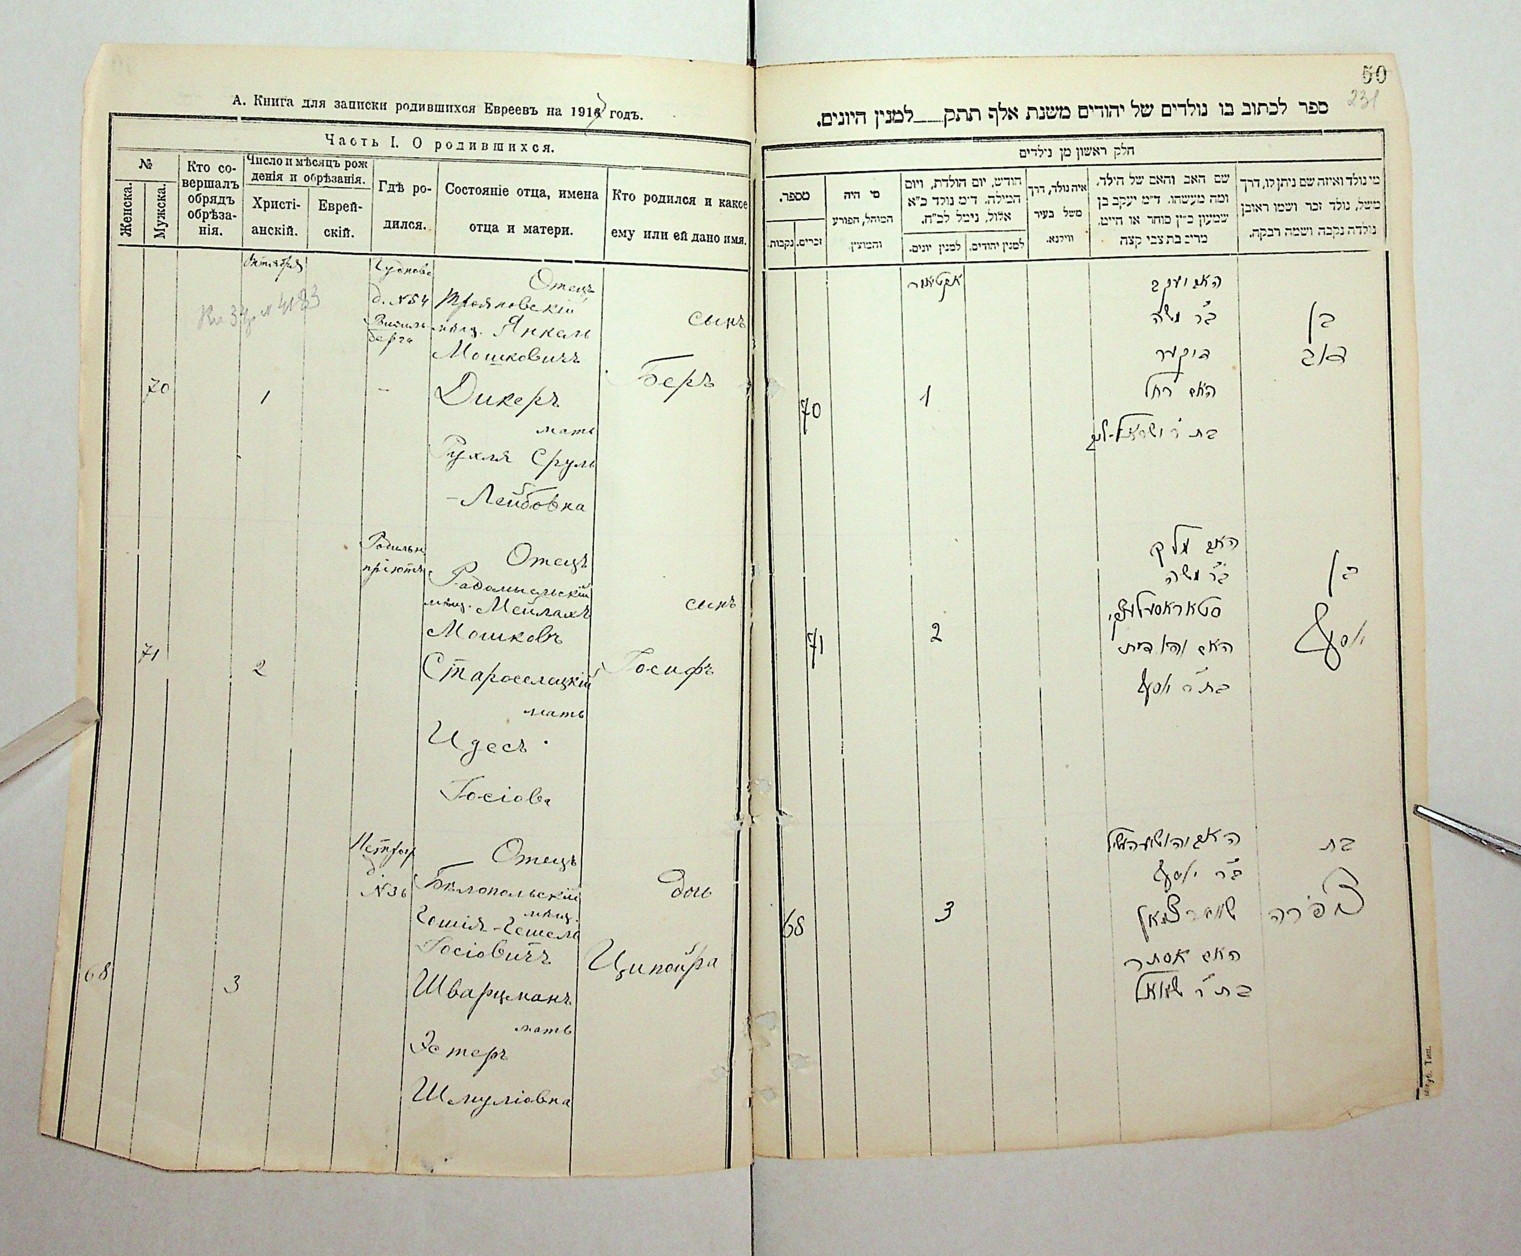 А. Книга для записки родившихся Евреевъ на 1917 годъ.
Часть I. О родившихся.
№
Женска.
Мужска.
Кто со-
вершалъ
обрядъ
обрѣза-
нія.
Число и мѣсяцъ рож
денія и обрѣзанія.
Христі-
анскій.
Еврей-
скій.
Гдѣ ро-
дился.
Состояніе отца, имена
отца и матери.
Кто родился и какое
ему или ей дано имя.
октября
д. №54
Отецъ
мѣщ. Янкель
Мошковичъ
сынъ
Беръ
70
1
Дикеръ
мать
Рухля Сруль
-Лейбовна
Родильн
пріютъ
Отецъ
Радомысльскій
мѣщ. Мейлахъ
сынъ
Мошковъ
71
2
Староселецкій
Іосифъ
мать
Идесъ
Іосіова
Петрогр
д.
№36
Отецъ
Бѣлопольскій
мѣщ.
дочь
Іосіовичъ
Ципойра
68
3
Шварцманъ
мать
Эстеръ
Шмуліовна
50
231
ספר לכתוב בו נולדים של יהודים משנת אלף תתק__למנין היונים.
חלק ראשון מן נולדים
מספר.
זכרים.
נקבות.
מי היה
המוהל, הפורע
והמוצץ.
חודש, יום הולדת, ויום
המילה. ד״מ נולד כ״א
אלול, נימל לכ״ח.
למנין יונים.
למנין יהודים.
איה נולד, דרך
משל בעיר
ווילנא.
שם האב והאם של הילד.
ומה מעשהו. ד״מ יעקב בן
שמעון כ״ץ סוחר או חייט.
מרים בת צבי קצה
מי נולד ואיזה שם ניתן לו, דרך
משל, נולד זכר ושמו ראובן
נולדה נקבה ושמה רבקה.
אקטאבר
האב יעקב
ב״ר משה
בן
דיקער
בער
70
1
האם רחל
בת ר׳ ישראל-ליב
האב מלך
ב״ר משה
בן
71
2
יוסף
האם יהודית
בת ר׳ יוסף
בת
ב״ר יוסף
68
3
שווארצמאן
צפורה
האם אסתר
בת ר׳ שמואל